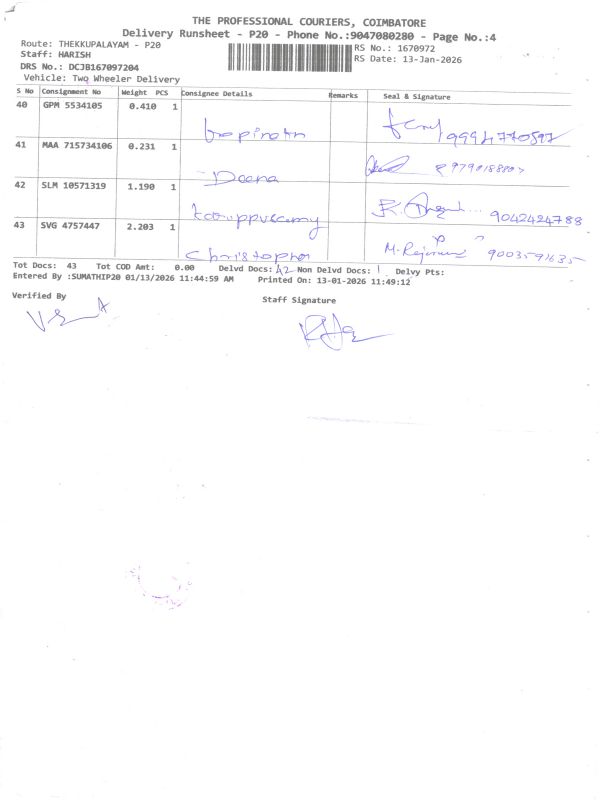 THE PROFESSIONAL COURIERS, COIMBATORE
Delivery Runsheet - P20 - Phone No.:9047080280 - Page No.:4
Route: THEKKUPALAYAM - P20
Staff: HARISH
DRS No.: DCJB167097204
Vehicle: Two Wheeler Delivery
RS No.: 1670972
RS Date: 13-Jan-2026
S No Consignment No Weight PCS Consignee Details Remarks Seal & Signature
40 GPM 5534105 0.410 1 Gopinath 9994770597
41 MAA 715734106 0.231 1 Deena 9790188807
42 SLM 10571319 1.190 1 karuppusamy 9042424788
43 SVG 4757447 2.203 1 Christopher 9003591635
Tot Docs: 43 Tot COD Amt: 0.00 Delvd Docs: 42 Non Delvd Docs: 1 Delvy Pts:
Entered By :SUMATHIP20 01/13/2026 11:44:59 AM Printed On: 13-01-2026 11:49:12
Verified By
Staff Signature